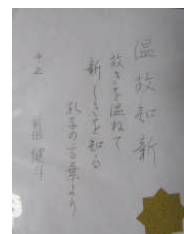 温故知新
故きを温ねて
新しきを知る
孔子の言葉より
健斗